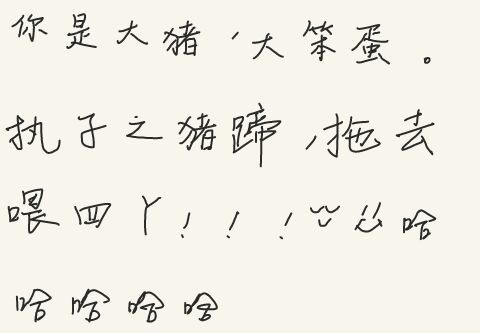 你是大猪，大笨蛋。
执子之猪蹄，拖去
喂四丫！！！哈
哈哈哈哈